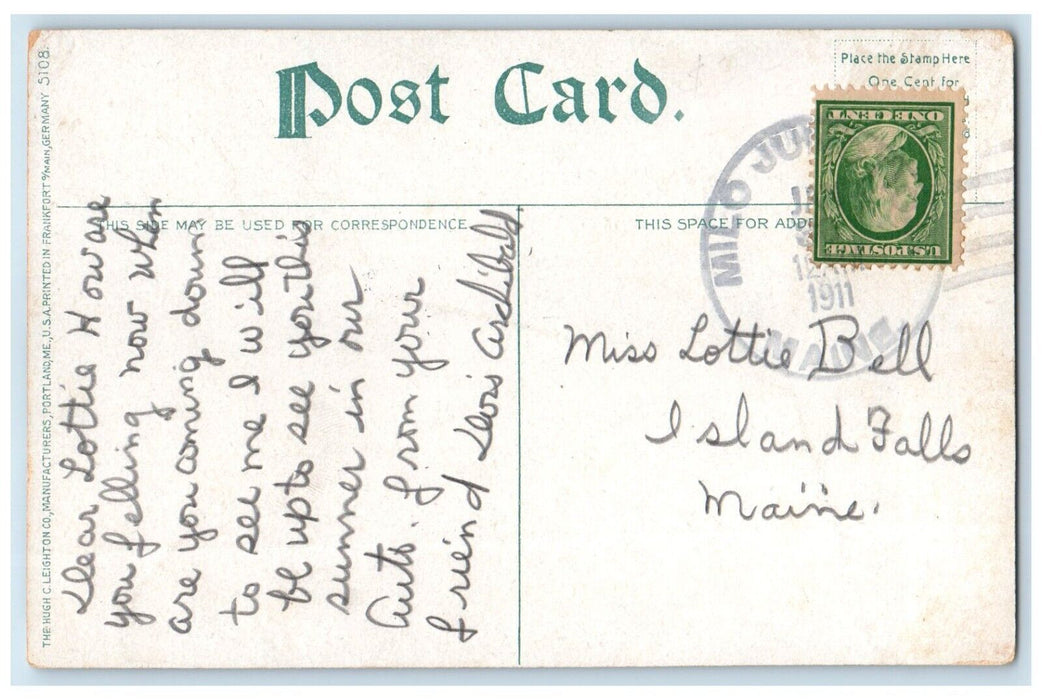 Post Card.
Place the Stamp Here
One Cent for
THIS SIDE MAY BE USED FOR CORRESPONDENCE
THIS SPACE FOR ADD
THE HUGH C. LEIGHTON CO., MANUFACTURERS, PORTLAND, ME., U.S.A. PRINTED IN FRANKFORT o/MAIN, GERMANY 5108.
ONE CENT
U.S. POSTAGE
MILO JU
1911
MAINE
Dear Lottie How are
you felling now when
are you coming down
to see me I will
be up to see you this
summer in our
Auto. from your
friend Lois Archibald
Miss Lottie Bell
Island Falls
Maine.